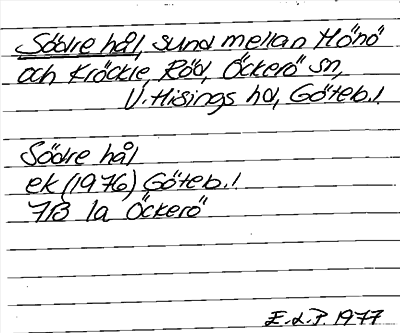 Södre hål, sund mellan Hönö
och Kröckle, Röd, Öckerö sn,
V. Hisings hd, Göteb.l.
Södre hål
ek (1976) Göteb.l
7B 1a Öckerö
E.L.P. 1977